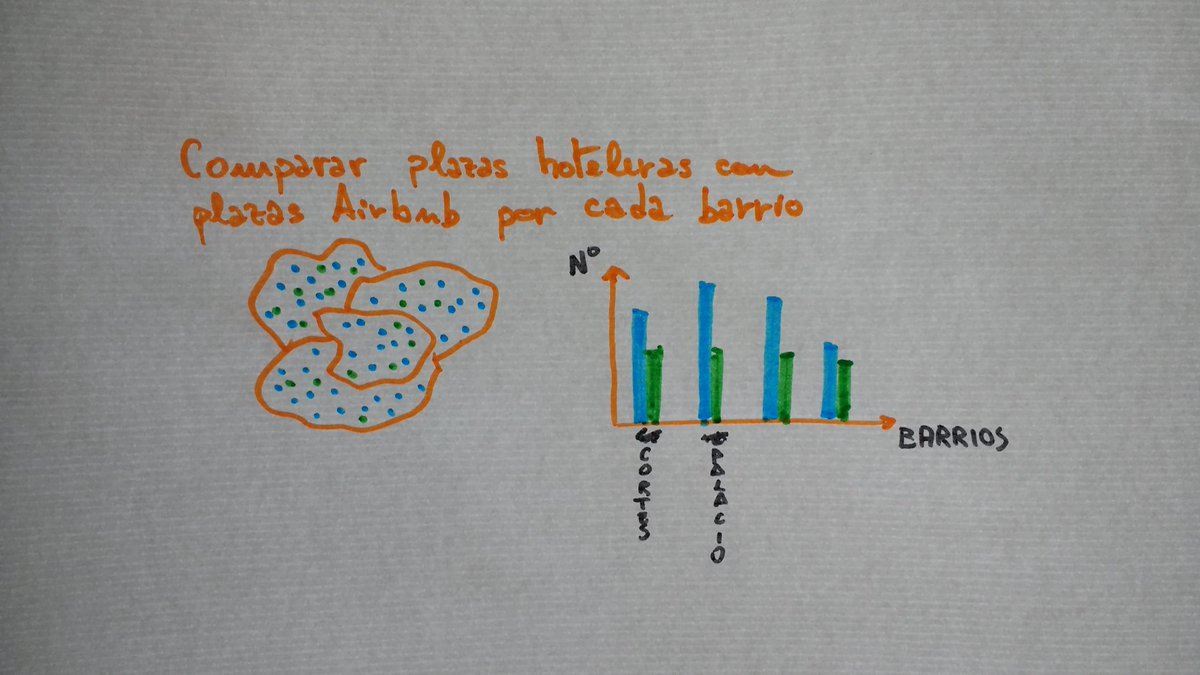 Comparar plazas hoteleras con
plazas Airbnb por cada barrio
Nº
BARRIOS
CORTES
PALACIO